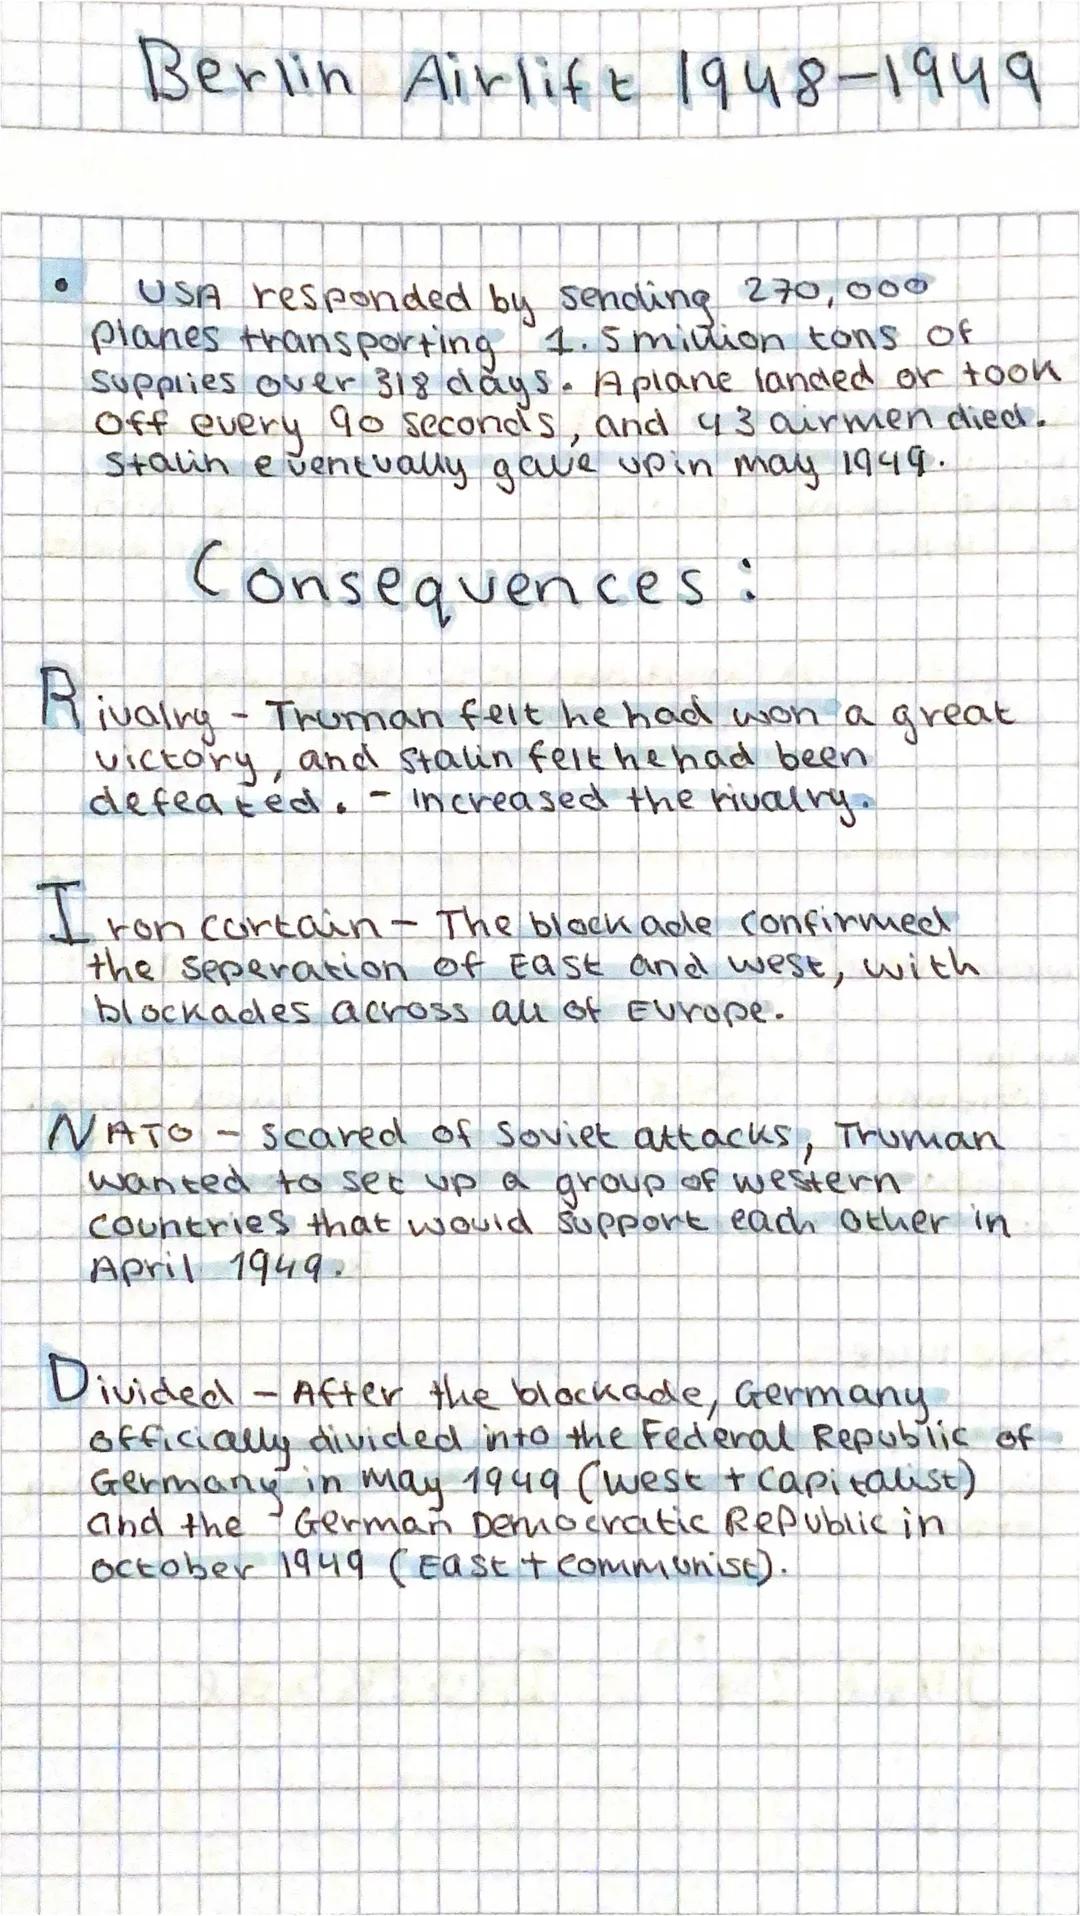 Berlin Airlift 1948-1949
• USA responded by sending 270,000
planes transporting 1.5 million tons of
supplies over 318 days. A plane landed or took
off every 90 seconds, and 43 airmen died.
Stalin eventually gave up in may 1949.
Consequences:
Rivalry - Truman felt he had won a great
victory, and Stalin felt he had been
defeated. - increased the rivalry.
Iron curtain - The blockade confirmed
the seperation of East and west, with
blockades across all of Europe.
NATO - scared of Soviet attacks, Truman
wanted to set up a group of western
countries that would support each other in
April 1949.
Divided - After the blockade, Germany
officially divided into the Federal Republic of
Germany in may 1949 (west + capitalist)
and the German Democratic Republic in
october 1949 (East + communist).